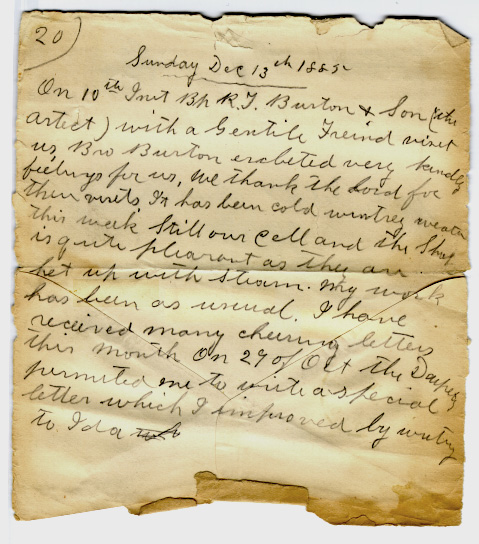 20)
Sunday Dec 13th 1885
On 10th Inst Bp R.T. Burton & Son (the
artist) with a Gentile Freind visit
us, Bro Burton exebeted very kindly
feelings for us, We thank the Lord for
their visits It has been cold wintrey weather
this week Still our Cell and the Shop
is quite pleasant as they are
het up with Steam. My work
has been as usual. I have
received many cheering letters
this month On 29 of Oct the
permited me to write a special
letter which I improved by writing
to Ida